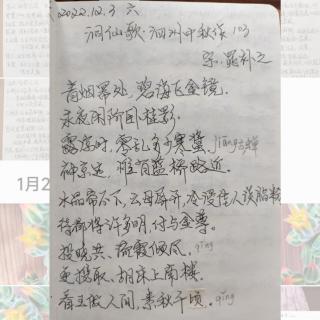 2022.12.3 六
洞仙歌·泗州中秋作 103
宋·晁补之
青烟幂处,碧海飞金镜.
永夜闲阶卧桂影.
露凉时,零乱多少寒螀, jiāng古蝉
神京远,惟有蓝桥路近.
水晶帘不下,云母屏开,冷浸佳人淡脂粉
待都将许多明,付与金尊.
投晓共、流霞倾尽. qīng
更携取、胡床上南楼.
看玉做人间,素秋千顷. qǐng
1月2